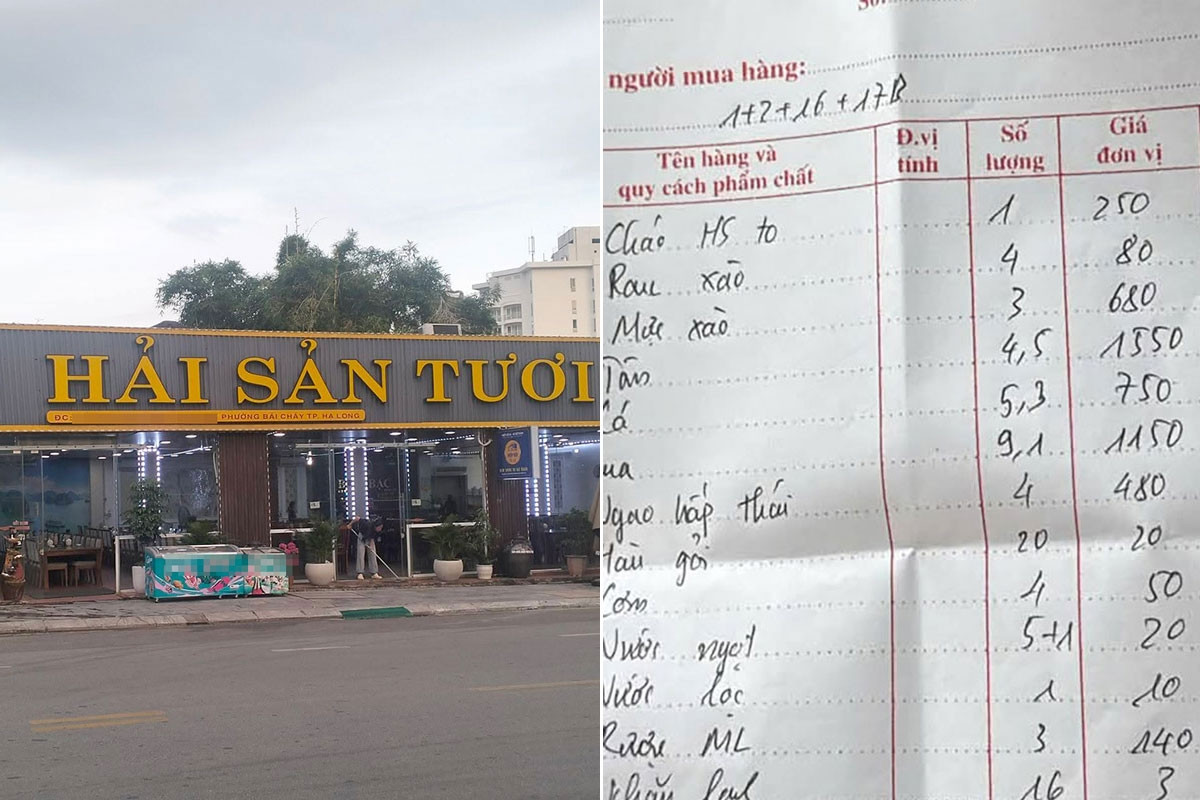 HẢI SẢN TƯƠI
ĐC:
PHƯỜNG BÃI CHÁY TP. HẠ LONG
BẮC
Số:
người mua hàng:
1+2+16+17B
Tên hàng và quy cách phẩm chất
Đ.vị tính
Số lượng
Giá đơn vị
Cháo HS to 1 250
Rau xào 4 80
Mực xào 3 680
Tôm 4,5 1550
Cá 5,3 750
ua 9,1 1150
Ngao hấp thái 4 480
Hàu gỏi 20 20
Cơm 4 50
Nước ngọt 5+1 20
Nước lọc 1 10
Rượu ML 3 140
Khăn lạnh 16 3